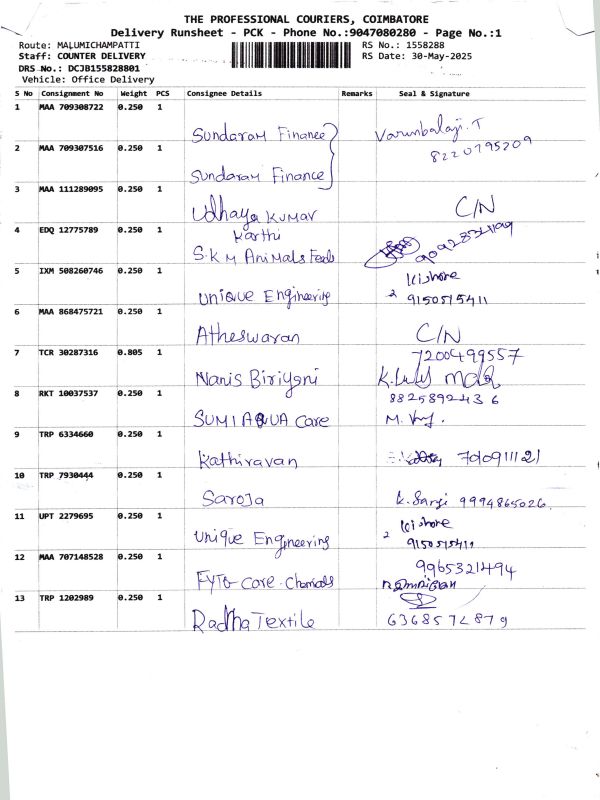 THE PROFESSIONAL COURIERS, COIMBATORE
Delivery Runsheet - PCK - Phone No.:9047080280 - Page No.:1
Route: MALUMICHAMPATTI RS No.: 1558288
Staff: COUNTER DELIVERY RS Date: 30-May-2025
DRS No.: DCJB155828801
Vehicle: Office Delivery
S No Consignment No Weight PCS Consignee Details Remarks Seal & Signature
1 MAA 709308722 0.250 1
Sundaram Finance Varunbalaji.T
8220795209
2 MAA 709307516 0.250 1
Sundaram Finance
3 MAA 111289095 0.250 1
Udhaya Kumar C/N
4 EDQ 12775789 0.250 1
Karthi
S.K.M Animals Feeds
5 IXM 508260746 0.250 1
Kishore
Unique Engineering 9150515411
6 MAA 868475721 0.250 1
Atheswaran C/N
7 TCR 30287316 0.805 1
7200499557
Nanis Biriyani
8 RKT 10037537 0.250 1
8825892436
SUMI AQUA Care
9 TRP 6334660 0.250 1
Kathiravan
10 TRP 7930444 0.250 1
Saroja K. Sanji 9994865026
11 UPT 2279695 0.250 1
Kishore
Unique Engineering 9150515411
12 MAA 707148528 0.250 1
9965321494
FYTO Care Chemicals
13 TRP 1202989 0.250 1
Radha Textile 6368572879